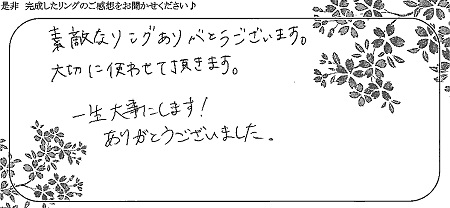 是非 完成したリングのご感想をお聞かせください♪
素敵なリングありがとうございます。
大切に使わせて頂きます。
一生大事にします!
ありがとうございました。